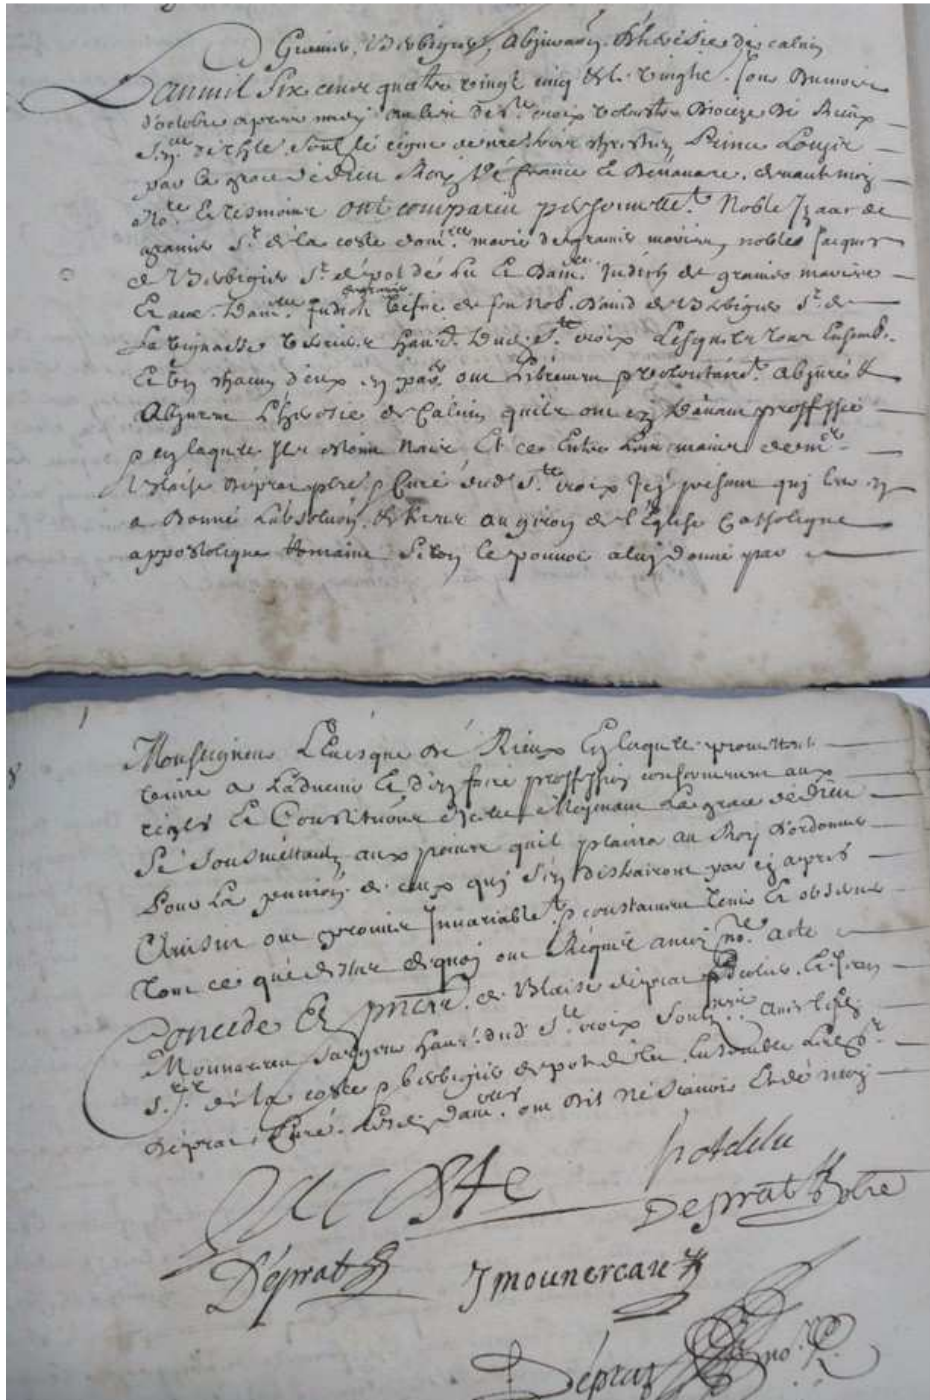 Grauies, Verbigier, Abjuraõn d'hérésie de calvin
L'an mil six cens quatre vingt cinq & le vingt & jour du mois
d'octobre apres midy au lieu de Ste croix volvestre Dioceze de Rieux
regnant tres chrestien Prince Louys
par la grace de dieu Roy de france & de navarre, devant moy
No.re & tesmoins ont comparu personnellt. Noble Izaac de
grauies sr. de la coste dam.lle marie de grauies mariés, nobles jacques
de Verbigier sr. de pot de lu & Dam.lle Judich de grauies mariés
Et aue Dam.lle Judich degrauies vefve de feu Nob. David de Verbigier sr. de
La vignasse habt. dud. Ste. croix Lesquels tous ensemb.
Et un chacun d'eux en par. ont librement & volontairet. abjuré &
Abjurent L'heresie de Calvin quils ont cy davant proffessée
& en laquelle ils estoint nais Et ce Entre Les mains de mre.
Blaise deprat pbre. & Curé dud. Ste. croix Icy presant quy leur en
a donné L'absolution au giron de l'Eglise Catholique
appostolique Romaine selon le pouvoir a luy donné par
Monseigneur L'Evesque de Rieux En laquelle promettent
vivre a L'advenir Et d'en faire proffession conformement aux
regles Et Constitutions d'icelle moyenant La grace de dieu
Se sousmettants aux peines quil plaira au Roy d'ordonner
Pour La punition de ceux quy s'en distrairont par cy apres
Ainsin ont promis Invariablet. & constament tenir Et observer
Tout ce que dessus dequoy ont Requis a moy no.re acte
Concedé En prñce de Blaise deprat & Jean
Mounereau habt. dud. Ste. croix soubsnes avec lesd.
srs. de la coste & verbigier de pot de lu Ensemble Led. sr.
deprat, Curé. Lesd. Dam.lles ont dit ne sçavoir Et de moy
LACOSTE potdelu
Desprat pbtre
Déprat Jmounereau
Déprat no.re